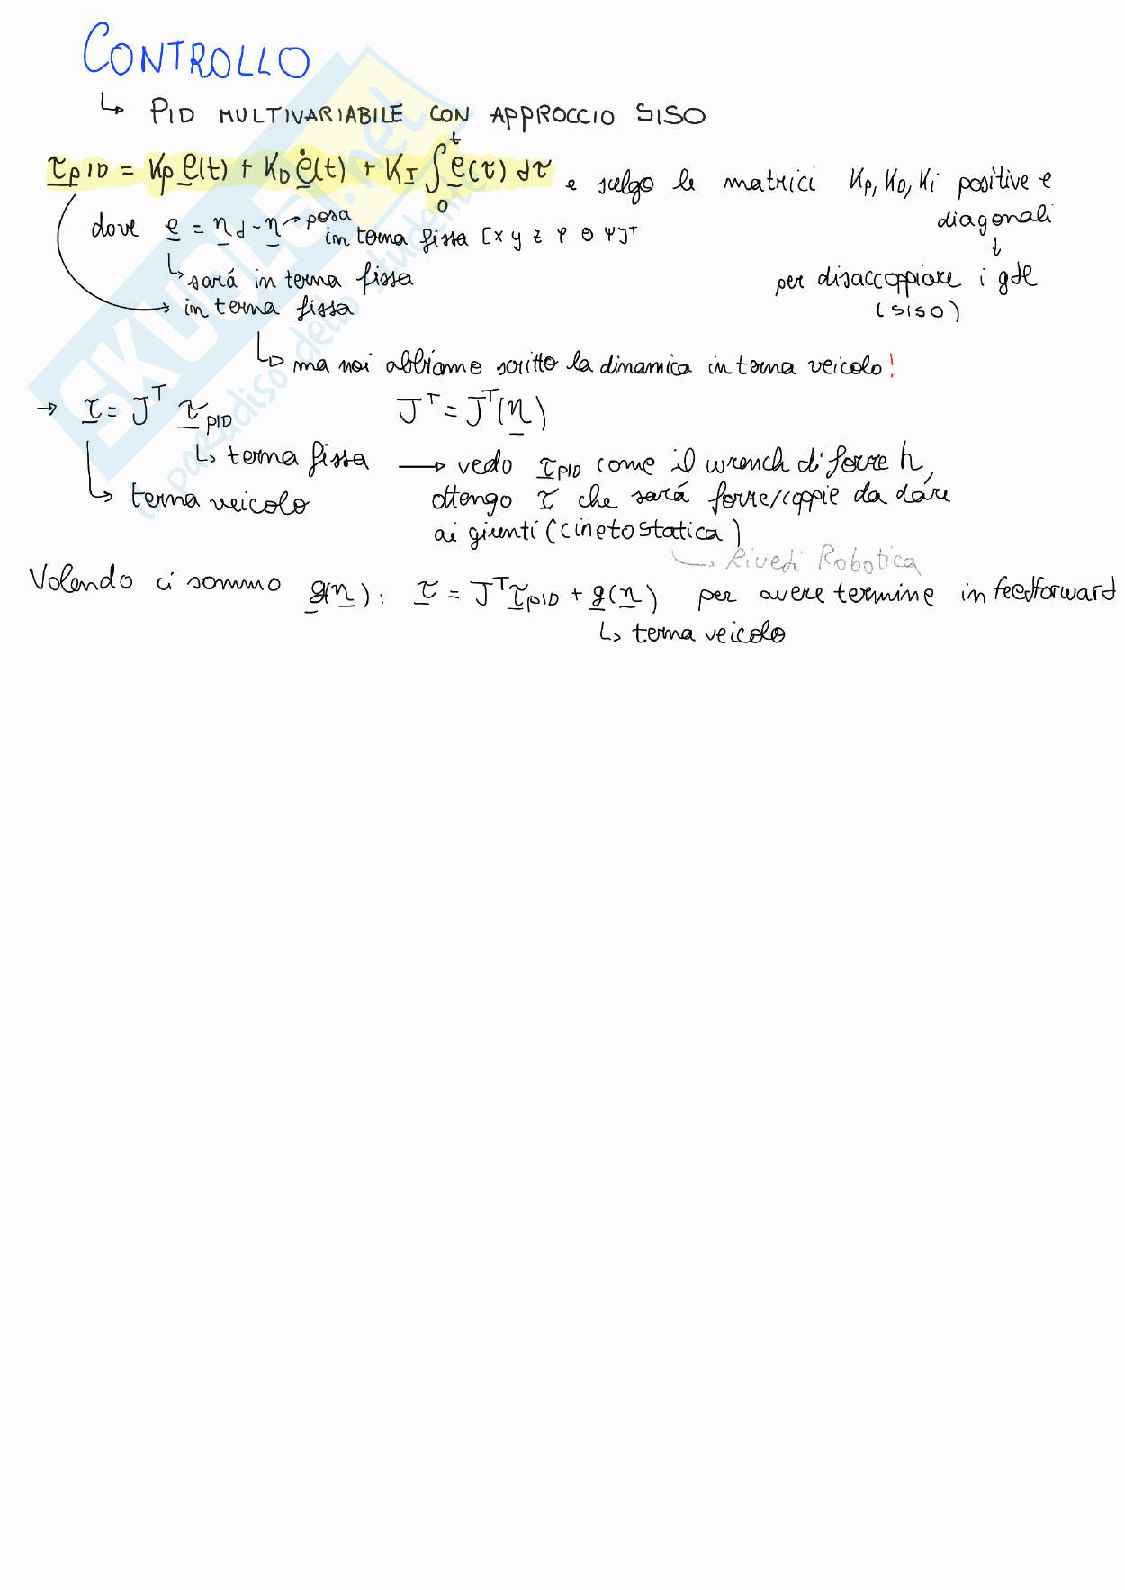 CONTROLLO
↳ PID MULTIVARIABILE CON APPROCCIO SISO
τ_PID = K_P e(t) + K_D ė(t) + K_I ∫₀ᵗ e(τ) dτ e scelgo le matrici K_P, K_D, K_i positive e
diagonali
↓
per disaccoppiare i gdl
(SISO)
dove e = η_d - η → posa
in terna fissa [x y z φ θ ψ]ᵀ
↳ sará in terna fissa
→ in terna fissa
↳ ma noi abbiamo scritto la dinamica in terna veicolo!
→ τ = Jᵀ τ_PID Jᵀ = Jᵀ(η)
↳ terna fissa → vedo τ_PID come il wrench di forze h,
↳ terna veicolo ottengo τ che sará forze/coppie da dare
ai giunti (cinetostatica)
↳ Rivedi Robotica
Volendo ci sommo g(η): τ = Jᵀτ_PID + g(η) per avere termine in feedforward
↳ terna veicolo
SKUOLA.net
il paradiso dello studente